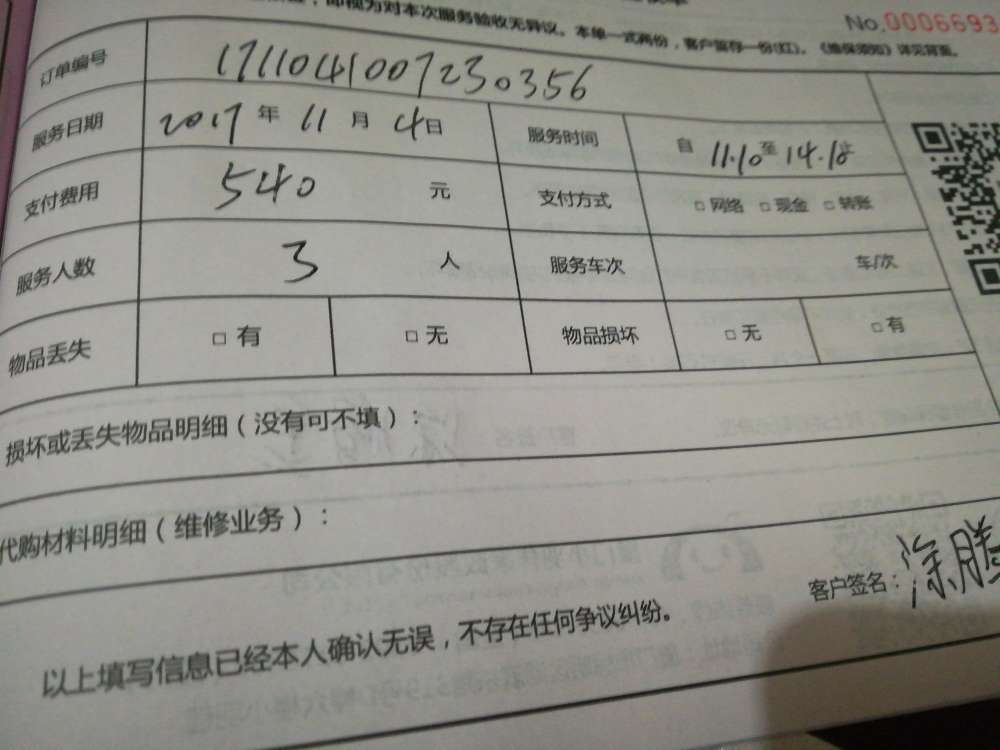 ，即视为对本次服务验收无异议。本单一式两份，客户留存一份(红)。《维保须知》详见背面。
No.0006693
订单编号 1711041007230356
服务日期 2017 年 11 月 4 日 服务时间 自 11.10 至 14.10 止
支付费用 540 元 支付方式 □ 网络 □ 现金 □ 转账
服务人数 3 人 服务车次 车/次
物品丢失 □ 有 □ 无 物品损坏 □ 无 □ 有
损坏或丢失物品明细（没有可不填）：
代购材料明细（维修业务）：
客户签名：涂腾
以上填写信息已经本人确认无误，不存在任何争议纠纷。